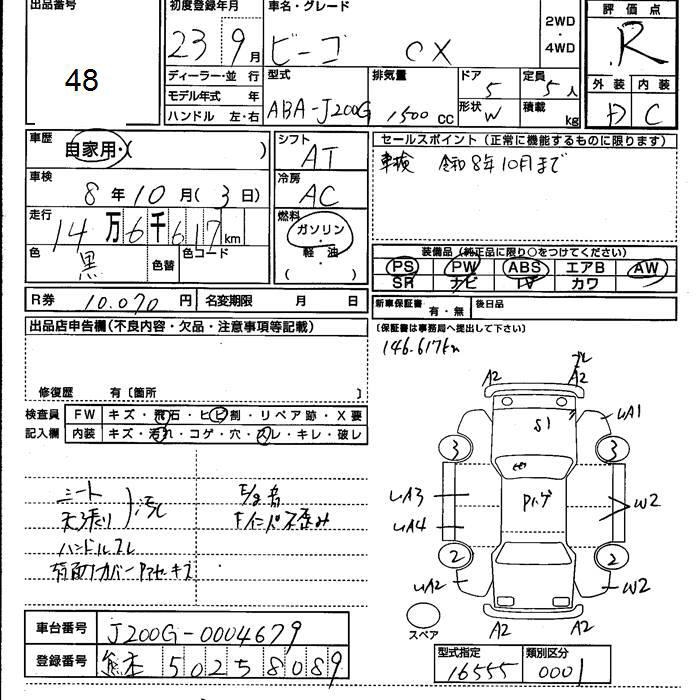 出品番号 初度登録年月 車名・グレード 2WD・4WD 評価点
48 23年 9月 ビーゴ CX R
ディーラー・並行 型式 排気量 ドア 定員 外装 内装
モデル年式 年 ABA-J200G 1500cc 5 5人 D C
ハンドル 左・右 形状 W 積載 kg
車歴 自家用・( ) シフト AT セールスポイント (正常に機能するものに限ります)
車検 8年10月(3日) 冷房 AC 車検 令和8年10月まで
走行 14万6千617km 燃料 ガソリン・軽油( )
色 黒 色替 色コード 装備品 (純正品に限り○をつけてください)
PS PW ABS エアB AW
SR ナビ TV カワ
R券 10.070円 名変期限 月 日 新車保証書 有・無 後日品
出品店申告欄(不良内容・欠品・注意事項等記載) (保証書は事務局へ提出して下さい)
146.617km
修復歴 有〔箇所 〕
検査員 FW キズ・飛石・ヒビ割・リペア跡・X要
記入欄 内装 キズ・汚れ・コゲ・穴・スレ・キレ・破レ
A2 A2
S1 A1
3 3
A3 W2
A4
2 2
A2 W2
A2 A2
スペア
シート
天張り 汚れ
ハンドルスレ
車台番号 J200G-0004679
登録番号 熊本 502 5 8089
型式指定 類別区分
16555 0001